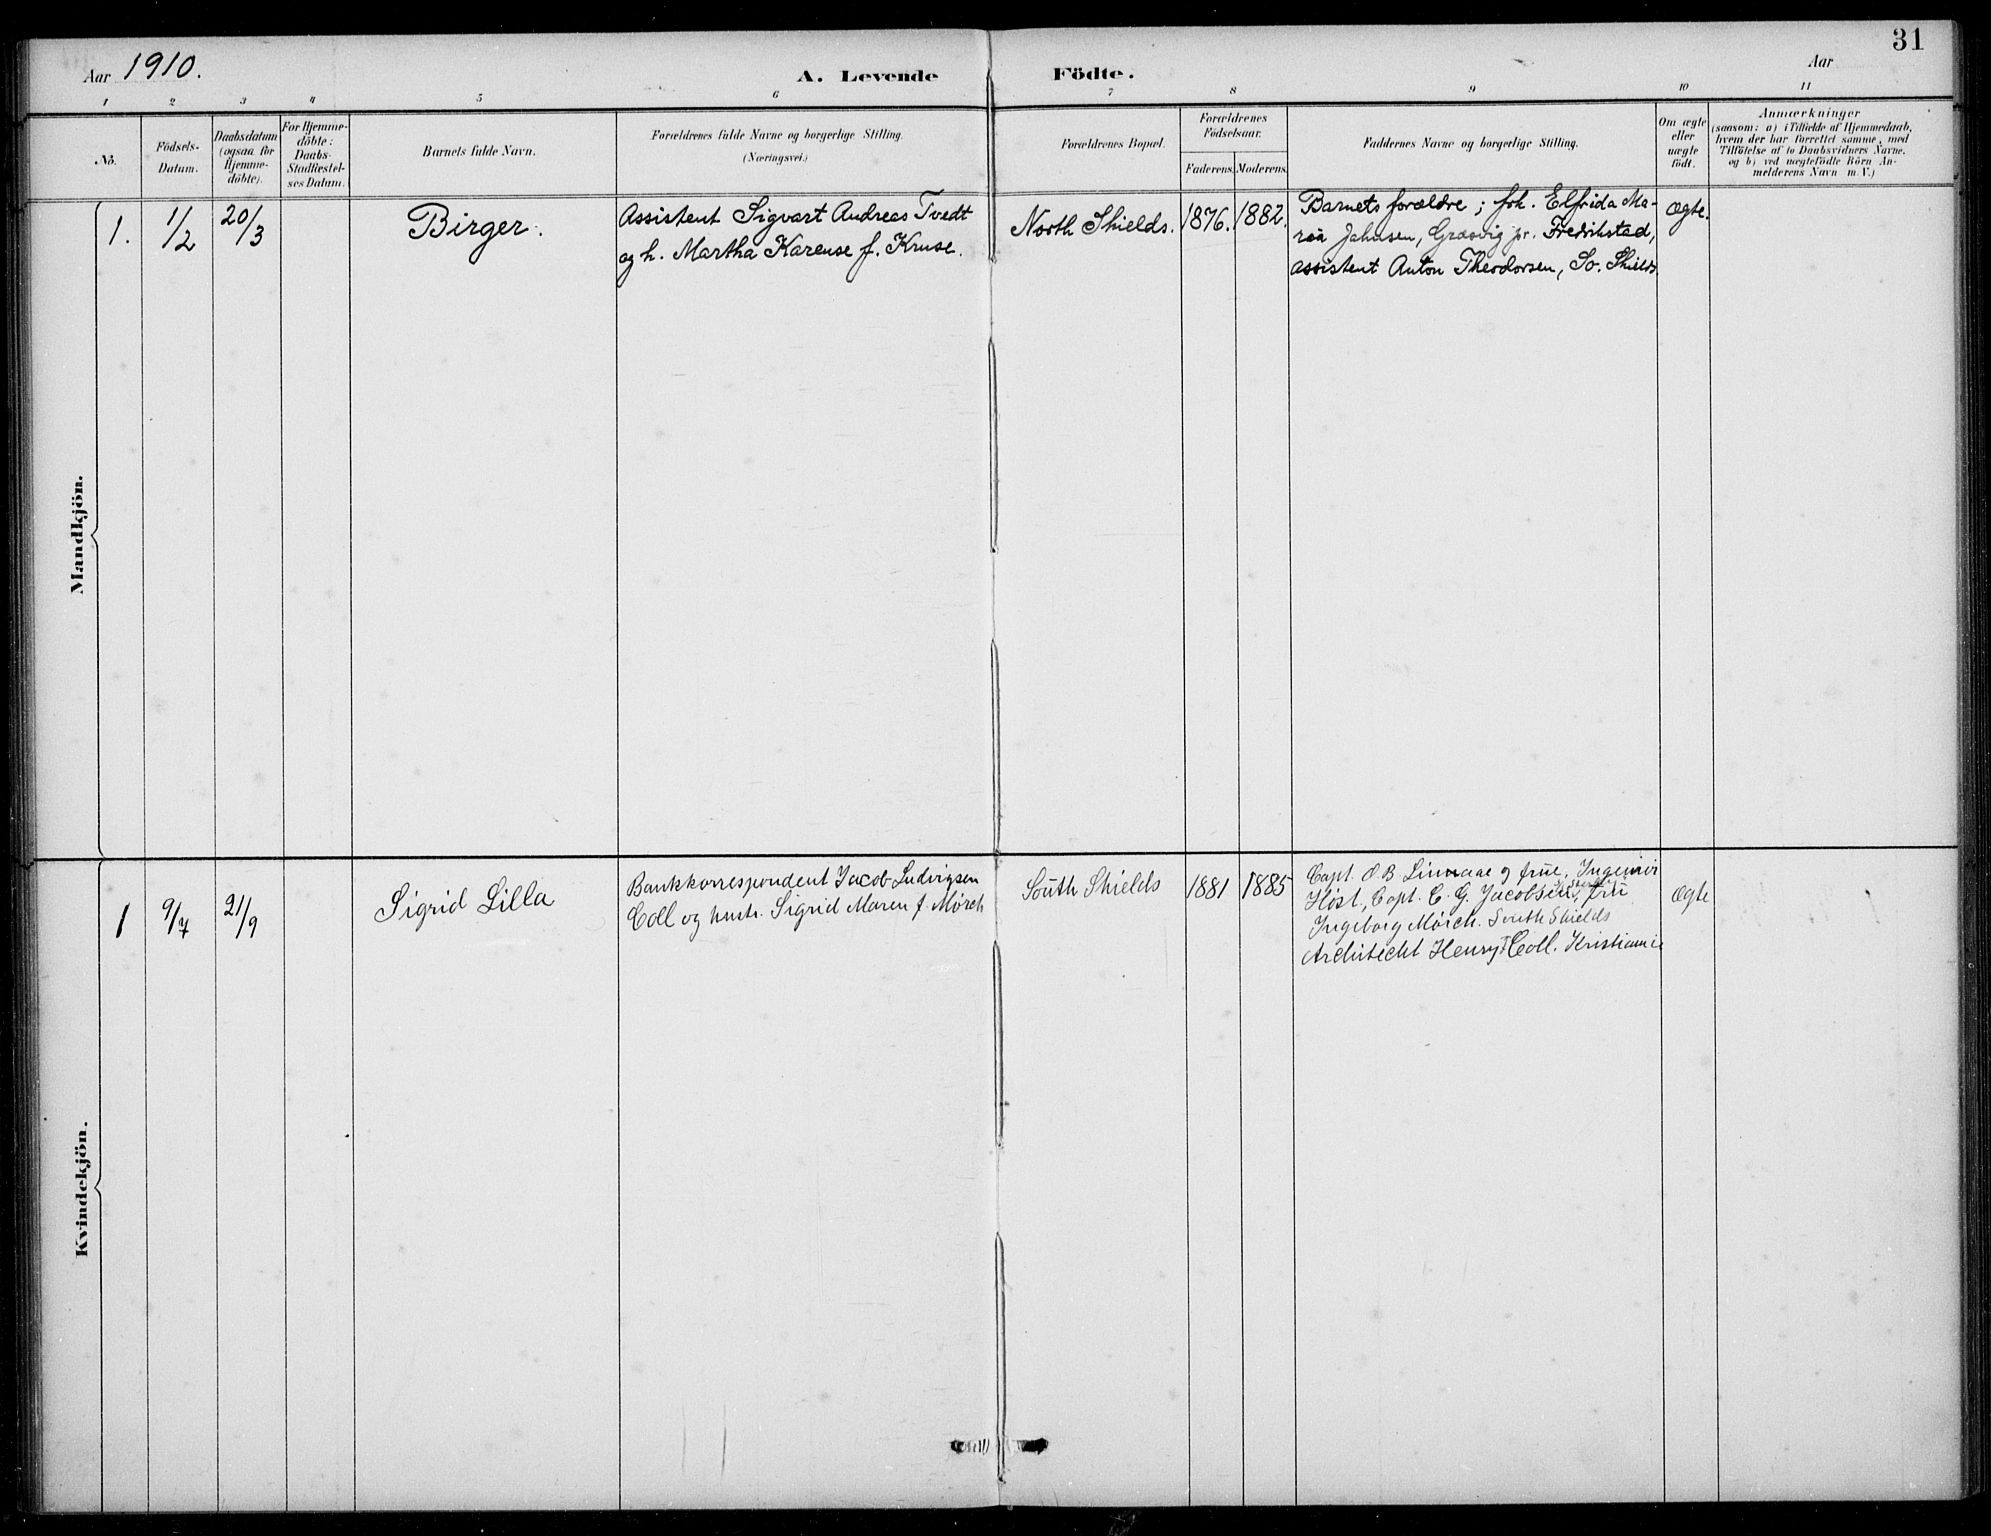 31
Aar 1910.
A. Levende Födte.
Aar
1 2 3 4 5 6 7 8 9 10 11
No.
Födsels-
Datum.
Daabsdatum
(ogsaa for
Hjemme-
döbte).
For Hjemme-
döbte:
Daabs-
Stadfæstel-
ses Datum.
Barnets fulde Navn.
Forældrenes fulde Navne og borgerlige Stilling.
(Næringsvei.)
Forældrenes Bopæl.
Forældrenes
Födselsaar.
Faderens. Moderens.
Faddernes Navne og borgerlige Stilling.
Om ægte
eller
uægte
födt.
Anmærkninger
(saasom: a) i Tilfælde af Hjemmedaab,
hvem der har forrettet samme, med
Tilföielse af to Daabsvidners Navne.
og b) ved uægtefödte Börn An-
melderens Navn m. V.)
Mandkjön.
1.
1/2
20/3
Birger.
Assistent Sigvart Andreas Tvedt
og h. Martha Karense f. Kruse.
North Shields.
1876.
1882.
Barnets forældre; frk. Elfrida Ma-
ria Jahnsen, Græsvig pr. Fredrikstad,
assistent Anton Theodorsen, So. Shields
Ægte.
Kvindekjön.
1
9/7
21/9
Sigrid Lilla
Bankkorrespondent Jacob Ludvigsen
Coll og hustr. Sigrid Maren f. Mørch
South Shields
1881
1885
Capt. O B Linnaae og frue, Ingeniör
Høst, Capt. C. G. Jacobsen, frü
Ingeborg Mörch. South Shields
Architecht Henry Coll. Kristiania
Ægte